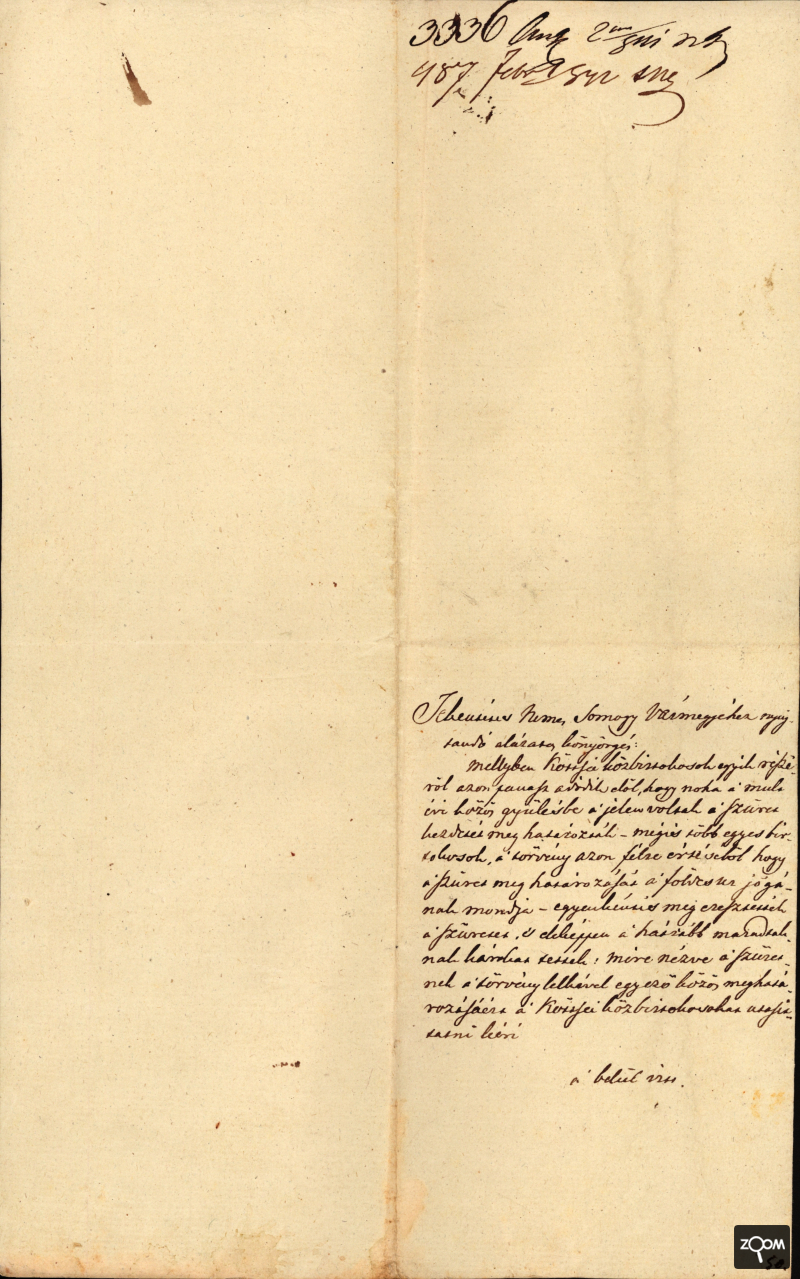 3336 Aug 2
487 Feb
Tekintetes Nemes Somogy Vármegyéhez nyuj-
tandó alázatos könyörgés:
mellyben Kőttsei közbirtokosok egyik részé-
ről azon panasz adódik elöl, hogy noha a' mult
évi közös gyülésbe a' jelen voltak a' szüret
kezdetét meg határozták – mégis több egyes bir-
tokosok, a' törvény azon félre értéséből hogy
a' szüret meg határozását a' földes ur jogá-
nak mondja – egyenként is meg eresztették
a' szüretet, és eképpen a' hátrább maradtak-
nak károkat tettek: mire nézve a' szüret-
nek a' törvény lelkével egyező közös meghatá-
rozásáért a' Kőttsei közbirtokosokat utasít-
tatni kéri
a' belül irtt.
ZOOM